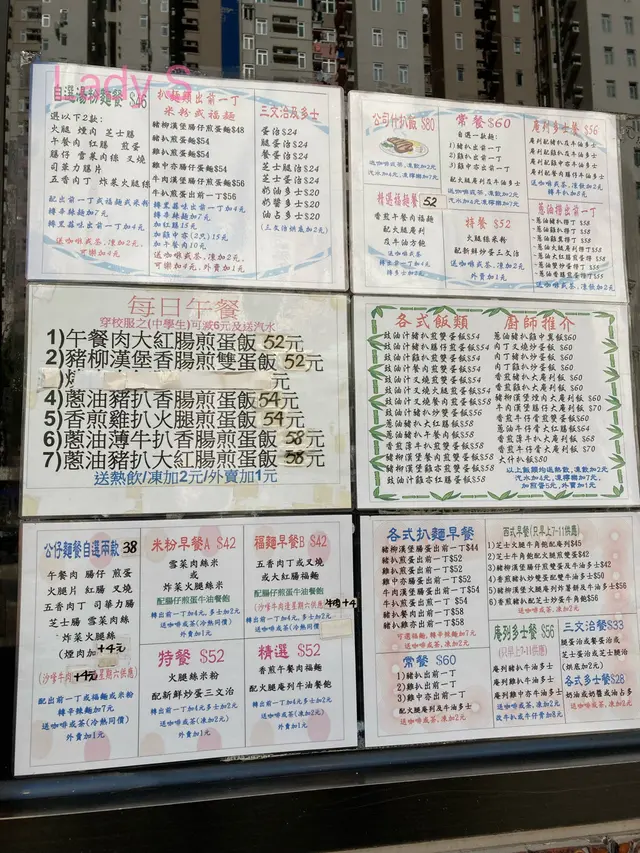 Lady S
自選湯粉麵餐 $46
選以下2款:
火腿 煙肉 芝士腸
午餐肉 紅腸 煎蛋
腸仔 雪菜肉絲 叉燒
司華力腸片
五香肉丁 炸菜火腿絲
轉辛辣麵加7元
送咖啡或茶,凍加2元,
可樂加4元
扒麵類出前一丁
米粉或福麵
豬柳漢堡腸仔煎蛋麵$48
豬扒煎蛋麵$54
雞扒煎蛋麵$54
雞中亦腸仔蛋麵$56
牛肉漢堡腸仔煎蛋麵$56
牛扒煎蛋出前一丁$56
轉辛辣麵加7元
加紅腸15元
加雞中亦(2只)15元
加午餐肉10元
送咖啡或茶,凍加2元,
可樂加4元,外賣加1元
三文治及多士
蛋治$24
腿蛋治$24
餐蛋治$24
芝士腿治$24
芝士蛋治$24
奶油多士$20
奶醬多士$20
油占多士$20
(三文治烘底加2元)
公司什扒飯 $80
常餐$60
自選一款:
1)豬扒出前一丁
2)雞扒出前一丁
3)雞中亦出前一丁
配火腿庵列及牛油多士
送咖啡或茶,凍加2元
精選福麵餐 52
香煎午餐肉福麵
配火腿庵列
及牛油方飽
特餐 $52
火腿絲米粉
配新鮮炒蛋三文治
送咖啡或茶,凍加2元
外賣加1元
庵列多士餐 $56
庵列配豬扒及牛油多士
庵列配雞扒及牛油多士
送咖啡或茶,凍飲加2元
蔥油撈出前一丁
送咖啡或茶,凍飲加2元
每日午餐
穿校服之(中學生)可減6元及送汽水
1)午餐肉大紅腸煎蛋飯 52元
2)豬柳漢堡香腸煎雙蛋飯 52元
元
4)蔥油豬扒香腸煎蛋飯 54元
5)香煎雞扒火腿煎蛋飯 54元
6)蔥油薄牛扒香腸煎蛋飯 58元
7)蔥油豬扒大紅腸煎蛋飯 58元
送熱飲/凍加2元/外賣加1元
各式飯類
豉油汁豬扒煎雙蛋飯$54
豉油汁豬扒腸仔煎蛋飯$54
豉油汁雞扒煎雙蛋飯$54
豉油汁餐肉煎雙蛋飯$54
豉油汁叉燒煎雙蛋飯$54
豉油汁叉燒腸仔煎蛋飯$54
豉油汁叉燒餐肉煎蛋飯$58
豉油汁豬扒炒雙蛋飯$56
蔥油豬扒大紅腸飯$58
蔥油豬扒午餐肉飯$58
豬柳漢堡雞亦煎蛋飯$58
豉油汁雞亦煎雙蛋飯$58
廚師推介
蔥油豬扒雞中翼飯$60
肉丁叉燒炒蛋飯 $60
肉丁豬扒煎蛋飯 $60
肉丁雞扒煎蛋飯 $60
香煎豬扒大庵列飯 $60
香煎雞扒大庵列飯 $60
豬柳漢堡煙肉大庵列飯 $60
牛肉漢堡腸仔大庵列飯 $70
香煎牛仔骨煎蛋飯 $60
蔥油牛仔骨大紅腸飯 $64
香煎薄牛扒大庵列飯 $68
香煎牛仔骨大庵列飯 $70
大什扒飯$80
以上飯類均送熱飲,凍飲加2元
汽水加4元,凍檸樂加7元,
加煎蛋5元,外賣加1元
公仔麵餐自選兩款 38
午餐肉 腸仔 煎蛋
火腿片 紅腸 叉燒
五香肉丁 司華力腸
芝士腸 雪菜肉絲
炸菜火腿絲
(煙肉加+4元)
配出前一丁或福麵或米粉
轉辛辣麵加7元
送咖啡或茶(冷熱同價)
外賣加1元
米粉早餐A $42
雪菜肉絲米
或
炸菜火腿絲米
配腸仔煎蛋牛油餐飽
轉出前一丁加4元,多士加2元
送咖啡或茶(冷熱同價)
外賣加1元
福麵早餐B $42
五香肉丁或叉燒
或大紅腸福麵
配腸仔煎蛋牛油餐飽
牛肉+4
轉出前一丁加4元,多士加2元
送咖啡或茶(冷熱同價)
特餐 $52
火腿絲米粉
配新鮮炒蛋三文治
轉出前一丁加4元
送咖啡或茶(凍加2元)
外賣加1元
精選 $52
香煎午餐肉福麵
配火腿庵列牛油餐飽
轉出前一丁加4元多士加2元
送咖啡或茶(凍加2元)
外賣加1元
各式扒麵早餐
豬柳漢堡腸蛋出前一丁$44
豬扒蛋出前一丁$52
雞扒蛋出前一丁$52
雞中亦腸蛋出前一丁$52
牛肉漢堡腸蛋出前一丁$52
牛扒煎蛋出前一丁$54
豬扒餐肉出前一丁$58
豬扒雞亦出前一丁$58
可選福麵,轉辛辣麵加7元
送咖啡或茶,凍加2元
常餐 $60
1)豬扒出前一丁
2)雞扒出前一丁
3)雞中亦出前一丁
配火腿庵列及牛油多士
送咖啡或茶,凍加2元
西式早餐(只早上7-11供應)
1)芝士火腿牛角飽配庵列$45
2)芝士牛角飽配火腿煎雙蛋$42
3)豬柳漢堡腸仔煎雙蛋及牛油多士$42
4)香煎豬扒炒雙蛋配雙牛油多士$50
6)香煎豬扒配芝士炒蛋牛角飽$56
送咖啡或茶,凍加2元
庵列多士餐 $56
(只早上7-11供應)
庵列豬扒牛油多士
庵列雞扒牛油多士
庵列雞中亦牛油多士
送咖啡或茶,凍加2元
改牛扒或牛仔骨加8元
三文治餐$33
腿蛋治或餐蛋治或
芝士蛋治或芝士腿治
(烘底加2元)
各式多士餐$28
奶油或奶醬或油占多
送咖啡或茶,凍加2元